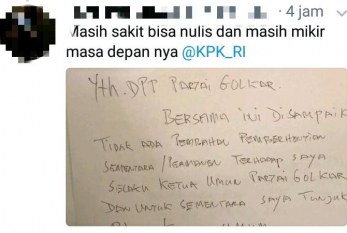 4 jam
Masih sakit bisa nulis dan masih mikir
masa depan nya @KPK_RI
Yth. DPP PARTAI GOLKAR.
BERSAMA INI DISAMPAIK
TIDAK ADA PEMBAHASAN PEMBERHENTIAN
SEMENTARA / PERMANEN TERHADAP SAYA
SELAKU KETUA UMUM PARTAI GOLKAR
DAN UNTUK SEMENTARA SAYA TUNJUK
UMUM